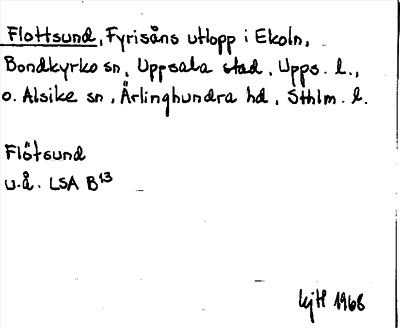 Flottsund, Fyrisåns utlopp i Ekoln,
Bondkyrko sn, Uppsala stad, Upps. l.,
o. Alsike sn, Ärlinghundra hd, Sthlm. l.
Flötsund
u.å. LSA B13
kjH 1968